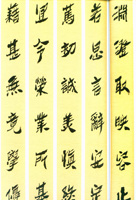 淵澄取映容止
若思言辭安定
篤初誠美慎終
宜令榮業所基
籍甚無竟學優